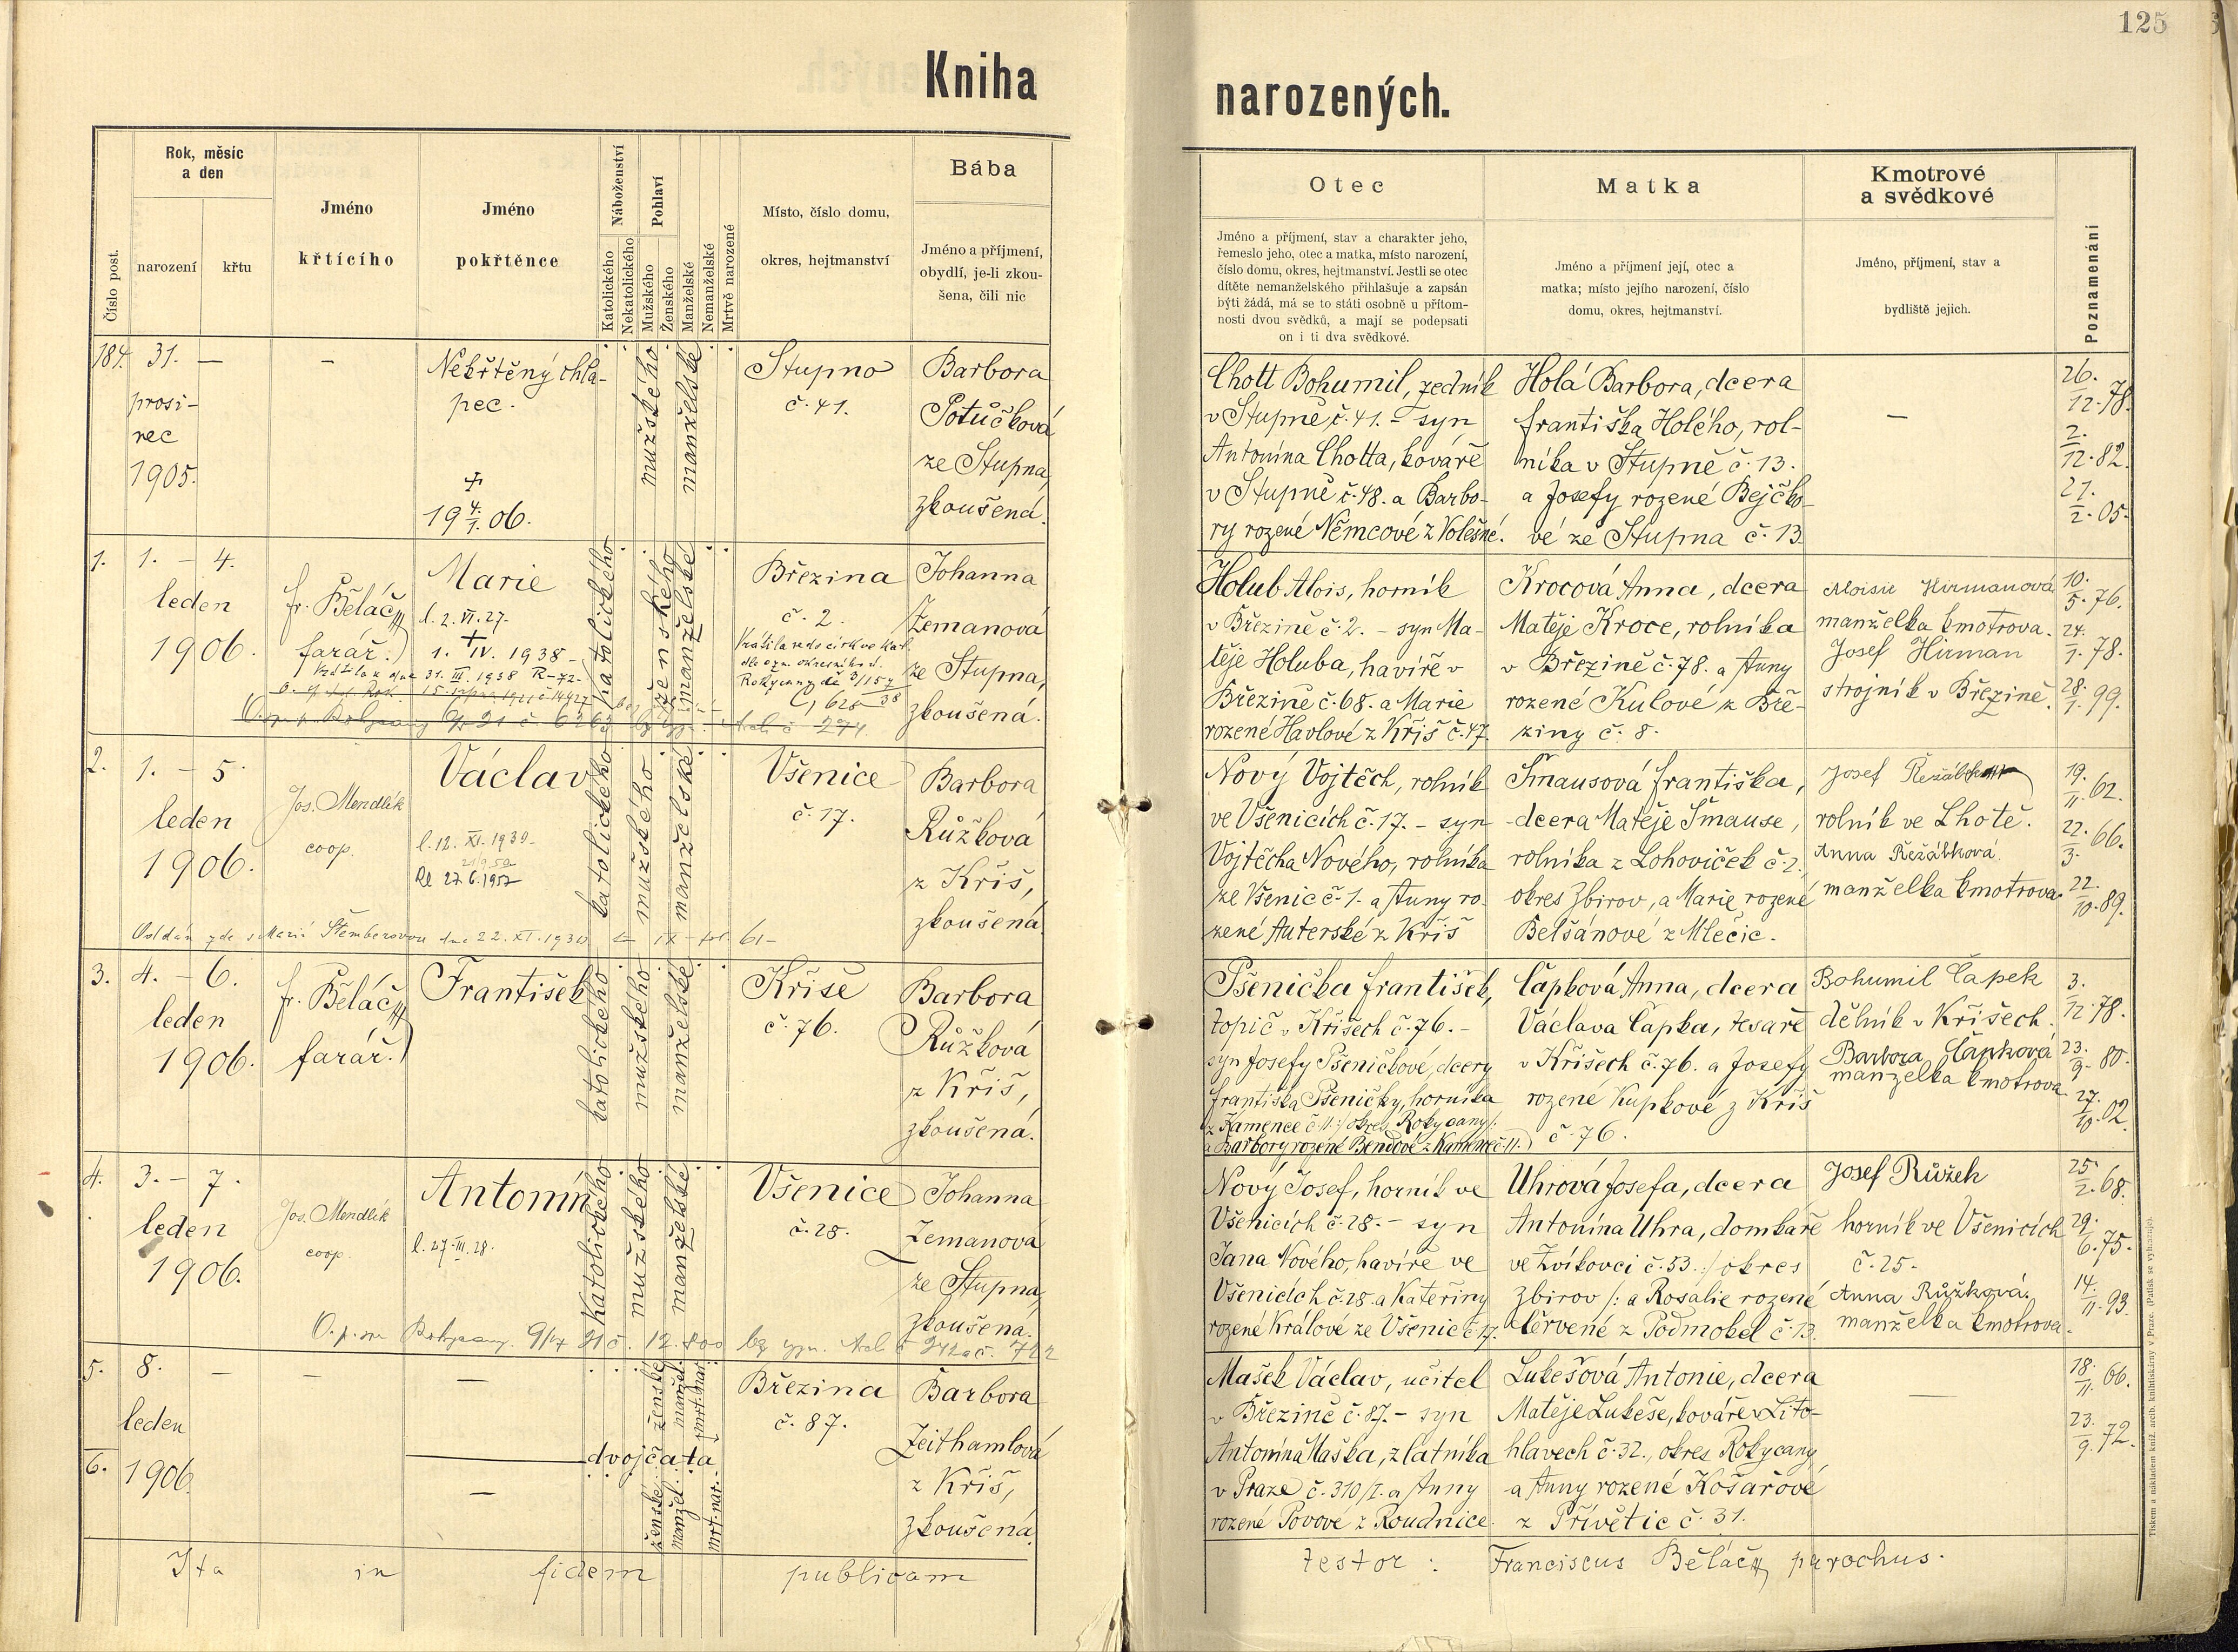 125
Kniha
narozených.
Číslo post.
Rok, měsíc
a den
narození
křtu
Jméno
křtícího
Jméno
pokřtěnce
Náboženství
Katolického
Nekatolického
Pohlaví
Mužského
Ženského
Manželské
Nemanželské
Mrtvě narozené
Místo, číslo domu,
okres, hejtmanství
Bába
Jméno a příjmení,
obydlí, je-li zkou-
šena, čili nic
Otec
Jméno a příjmení, stav a charakter jeho,
řemeslo jeho, otec a matka, místo narození,
číslo domu, okres, hejtmanství. Jestli se otec
dítěte nemanželského přihlašuje a zapsán
býti žádá, má se to státi osobně u přítom-
nosti dvou svědků, a mají se podepsati
on i ti dva svědkové.
Matka
Jméno a příjmení její, otec a
matka; místo jejího narození, číslo
domu, okres, hejtmanství.
Kmotrové
a svědkové
Jméno, příjmení, stav a
bydliště jejich.
Poznamenání
184. 31. —
prosi-
nec
1905.
—
Nekřtěný chla-
pec.
+
19 4/1. 06.
mužského
manželské
Stupno
č. 41.
Barbora
Potůčková
ze Stupna,
zkoušená.
Chott Bohumil, zedník
v Stupně č. 41. – syn
Antonína Chotta, kováře
v Stupně č. 48. a Barbo-
ry rozené Němcové z Volešné.
Holá Barbora, dcera
Františka Holého, rol-
níka v Stupně č. 13.
a Josefy rozené Bejčko-
vé ze Stupna č. 13.
—
26./12. 78.
2./12. 82.
21./2. 05.
1. 1. – 4.
leden
1906.
Fr. Běláč
farář.
Marie
l. 2. VI. 27.
+
1. IV. 1938 –
31. III. 1938 R–72–
katolického
ženského
manželské
Březina
č. 2.
Vrátila se do církve kat.
dle ozn. okresního ú.
Johanna
Zemanová
ze Stupna,
zkoušená.
Holub Alois, horník
v Březině č. 2. – syn Ma-
těje Holuba, havíře v
Březině č. 68. a Marie
rozené Havlové z Kříš č. 47.
Krocová Anna, dcera
Matěje Kroce, rolníka
v Březině č. 78. a Anny
rozené Kulové z Bře-
ziny č. 8.
Aloisie Hirmanová
manželka kmotrova.
Josef Hirman
strojník v Březině.
10./5. 76.
24./1. 78.
28./1. 99.
2. 1. – 5.
leden
1906.
Jos. Mendlík
coop.
Václav
l. 12. XI. 1930.
Rl 27. 6. 1957
katolického
mužského
manželské
Všenice
č. 17.
Barbora
Růžková
z Kříš,
zkoušená.
Oddán zde s Marií Štemberovou dne 22. XI. 1930
Nový Vojtěch, rolník
ve Všenicích č. 17. – syn
Vojtěcha Nového, rolníka
ze Všenic č. 1. a Anny ro-
zené Auterské z Kříš
Šmausová Františka,
dcera Matěje Šmause,
rolníka z Lohoviček č. 2.,
okres Zbirov, a Marie rozené
Belšánové z Mlečic.
Josef Řežábek
rolník ve Lhotě.
Anna Řežábková
manželka kmotrova.
19./11. 62.
22./3. 66.
22./10. 89.
3. 4. – 6.
leden
1906.
Fr. Běláč
farář.
František
katolického
mužského
manželské
Kříše
č. 76.
Barbora
Růžková
z Kříš,
zkoušená.
Pšenička František,
topič v Kříšech č. 76. –
syn Josefy Pšeničkové, dcery
Františka Pšeničky, horníka
z Kamence č. 11. /: okres Rokycany :/
a Barbory rozené Bendové z Kamence č. 11.
Čapková Anna, dcera
Václava Čapka, tesaře
v Kříšech č. 76. a Josefy
rozené Kupkové z Kříš
č. 76.
Bohumil Čapek
dělník v Kříšech.
Barbora Čapková
manželka kmotrova
3./12. 78.
23./9. 80.
27./10. 02.
4. 3. – 7.
leden
1906.
Jos. Mendlík
coop.
Antonín
l. 27. III. 28.
katolického
mužského
manželské
Všenice
č. 28.
Johanna
Zemanová
ze Stupna,
zkoušená.
Nový Josef, horník ve
Všenicích č. 28. – syn
Jana Nového, havíře ve
Všenicích č. 28. a Kateřiny
rozené Králové ze Všenic č. 17.
Uhrová Josefa, dcera
Antonína Uhra, domkaře
ve Zvíkovci č. 53. /: okres
Zbirov /: a Rosalie rozené
Červené z Podmokel č. 13.
Josef Růžek
horník ve Všenicích
č. 25.
Anna Růžková
manželka kmotrova.
25./2. 68.
29./6. 75.
14./11. 93.
5. 8. —
leden
6. 1906.
—
—
dvojčata
—
ženské
manžel.
mrt. nar.
ženské
manžel.
mrt. nar.
Březina
č. 87.
Barbora
Zeithamlová
z Kříš,
zkoušená.
Mašek Václav, učitel
v Březině č. 87. – syn
Antonína Maška, zlatníka
v Praze č. 310/I. a Anny
rozené Povové z Roudnice.
Lukešová Antonie, dcera
Matěje Lukeše, kováře v Lito-
hlavech č. 32., okres Rokycany
a Anny rozené Košařové
z Přívětic č. 31.
—
18./11. 66.
23./9. 72.
Ita in fidem publicam
testor: Franciscus Běláč parochus.
Tiskem a nákladem kníž. arcib. knihtiskárny v Praze. (Patisk se vyhrazuje).